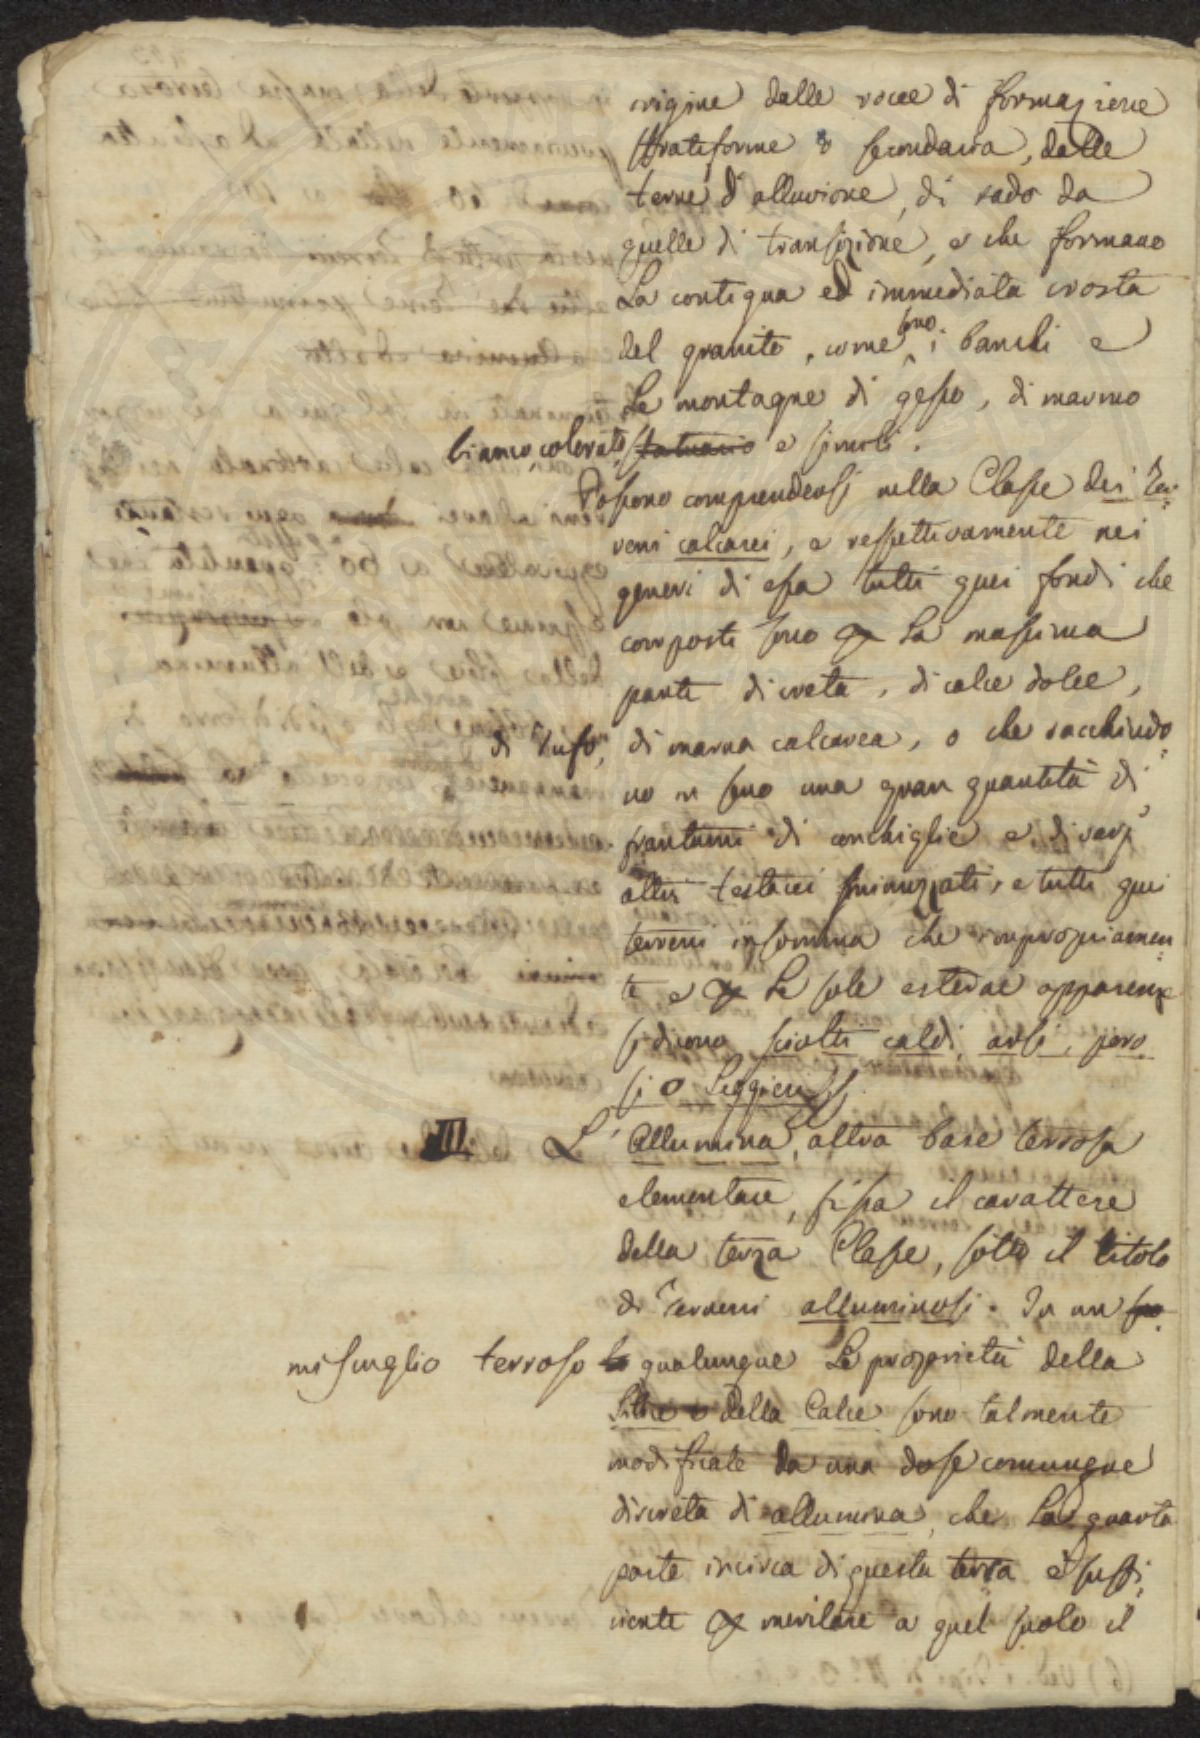 origine dalle rocce di formazione
stratiforme o secondaria, dalle
terre d'alluvione, di rado da
quelle di transizione, e che formano
La contigua ed immediata crosta
del granito, come sono i banchi e
Le montagne di gesso, di marmo
bianco, colorato, statuario e simili.
Possono comprendersi nella Classe dei Ter=
reni calcarei, e rispettivamente nei
generi di essa tutti quei fondi che
composti sono p La massima
parte di creta, di calce dolce,
di tufo, di marna calcarea, o che racchiudo=
no in seno una gran quantità di
frantumi di conchiglie e di varj
altri testacei sminuzzati, e tutti quei
terreni insomma che impropriamen=
te e p Le sole esterne apparenze
si dicono sciolti caldi, arsi, poro
si o Leggieri.
III. L'Allumina, altra base terrosa
elementare, fissa il carattere
della terza Classe, sotto il titolo
di Terreni alluminosi. In un suo
misuglio terroso lo qualunque Le proprietà della
Silice e della Calce sono talmente
modificate da una dose comunque
discreta di allumina, che La quarta
parte incirca di questa terra è suffi=
ciente p meritare a quel suolo il